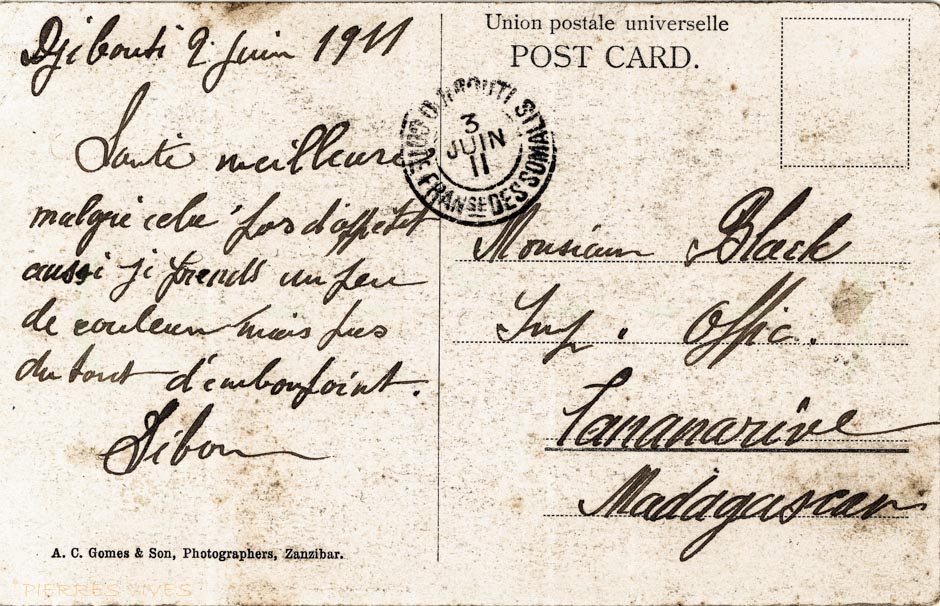 Djibouti 2 juin 1911
Santé meilleure
malgré cela pas d'appetit
aussi je prends un peu
de couleur mais pas
du tout d'embonpoint.
Sibon
A. C. Gomes & Son, Photographers, Zanzibar.
Union postale universelle
POST CARD.
DJIBOUTI
3
JUIN
11
COTE FRANSE DES SOMALIS
Monsieur Black
Imp. Offic.
Tananarive
Madagascar
PIERRES VIVES